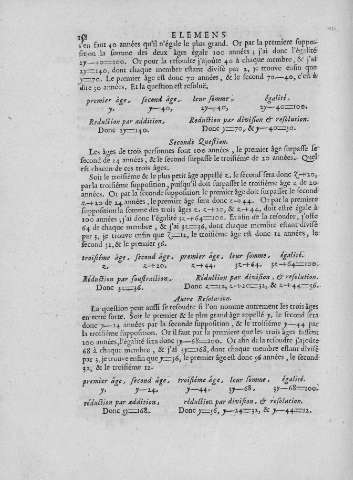 158 ELEMENS
s'en faut 40 années qu'il n'égale le plus grand. Or par la premiere suppo-
sition la somme des deux âges égale 100 années; j'ai donc l'égalité
2y—40=100. Or pour la resoudre j'ajoûte 40 à chaque membre, & j'ai
2y=140, dont chaque membre estant divisé par 2, je trouve enfin que
y=70. Le premier âge est donc 70 années, & le second 70—40, c'est à
dire 30 années. Et la question est resoluë.
premier âge, second âge, leur somme, égalité.
y. y—40, 2y—40, 2y—40=100.
Reduction par addition. Reduction par division & resolution.
Donc 2y=140. Donc y=70, & y—40=30.
Seconde Question.
Les âges de trois personnes font 100 années, le premier âge surpasse le
second de 24 années, & le second surpasse le troisiéme de 20 années. Quel
est chacun de ces trois âges.
Soit le troisiéme & le plus petit âge appellé z, le second sera donc z+20,
par la troisiéme supposition, puisqu'il doit surpasser le troisiéme âge z de 20
années. Or par la seconde supposition le premier âge doit surpasser le second
z+20 de 24 années, le premier âge sera donc z+44. Or par la premiere
supposition la somme des trois âges z, z+20, & z+44, doit estre égale à
100 années; j'ai donc l'égalité 3z+64=100. Et afin de la resoudre, j'oste
64 de chaque membre, & j'ai 3z=36, dont chaque membre estant divisé
par 3, je trouve enfin que z=12, le troisiéme âge est donc 12 années, le
second 32, & le premier 56.
troisiéme âge, second âge, premier âge, leur somme, égalité.
z, z+20, z+44, 3z+64, 3z+64=100.
Réduction par soustraction. Réduction par division, & resolution.
Donc 3z=36. Donc z=12, z+20=32, & z+44=56.
Autre Resolution.
La question peut aussi se resoudre si l'on nomme autrement les trois âges
en cette sorte. Soit le premier & le plus grand âge appellé y, le second sera
donc y—24 années par la seconde supposition, & le troisiéme y—44 par
la troisiéme supposition. Or il faut par la premiere que les trois âges fassent
100 années, l'égalité sera donc 3y—68=100. Or afin de la resoudre j'ajoûte
68 à chaque membre, & j'ai 3y=168, dont chaque membre estant divisé
par 3, je trouve enfin que y=56, le premier âge est donc 56 années, le second
32, & le troisiéme 12.
premier âge, second âge, troisiéme âge, leur somme, égalité.
y, y—24, y—44, 3y—68, 3y—68=100.
réduction par addition, réduction par division, & resolution.
Donc 3y=168. Donc y=56, y—24=32, & y—44=12.